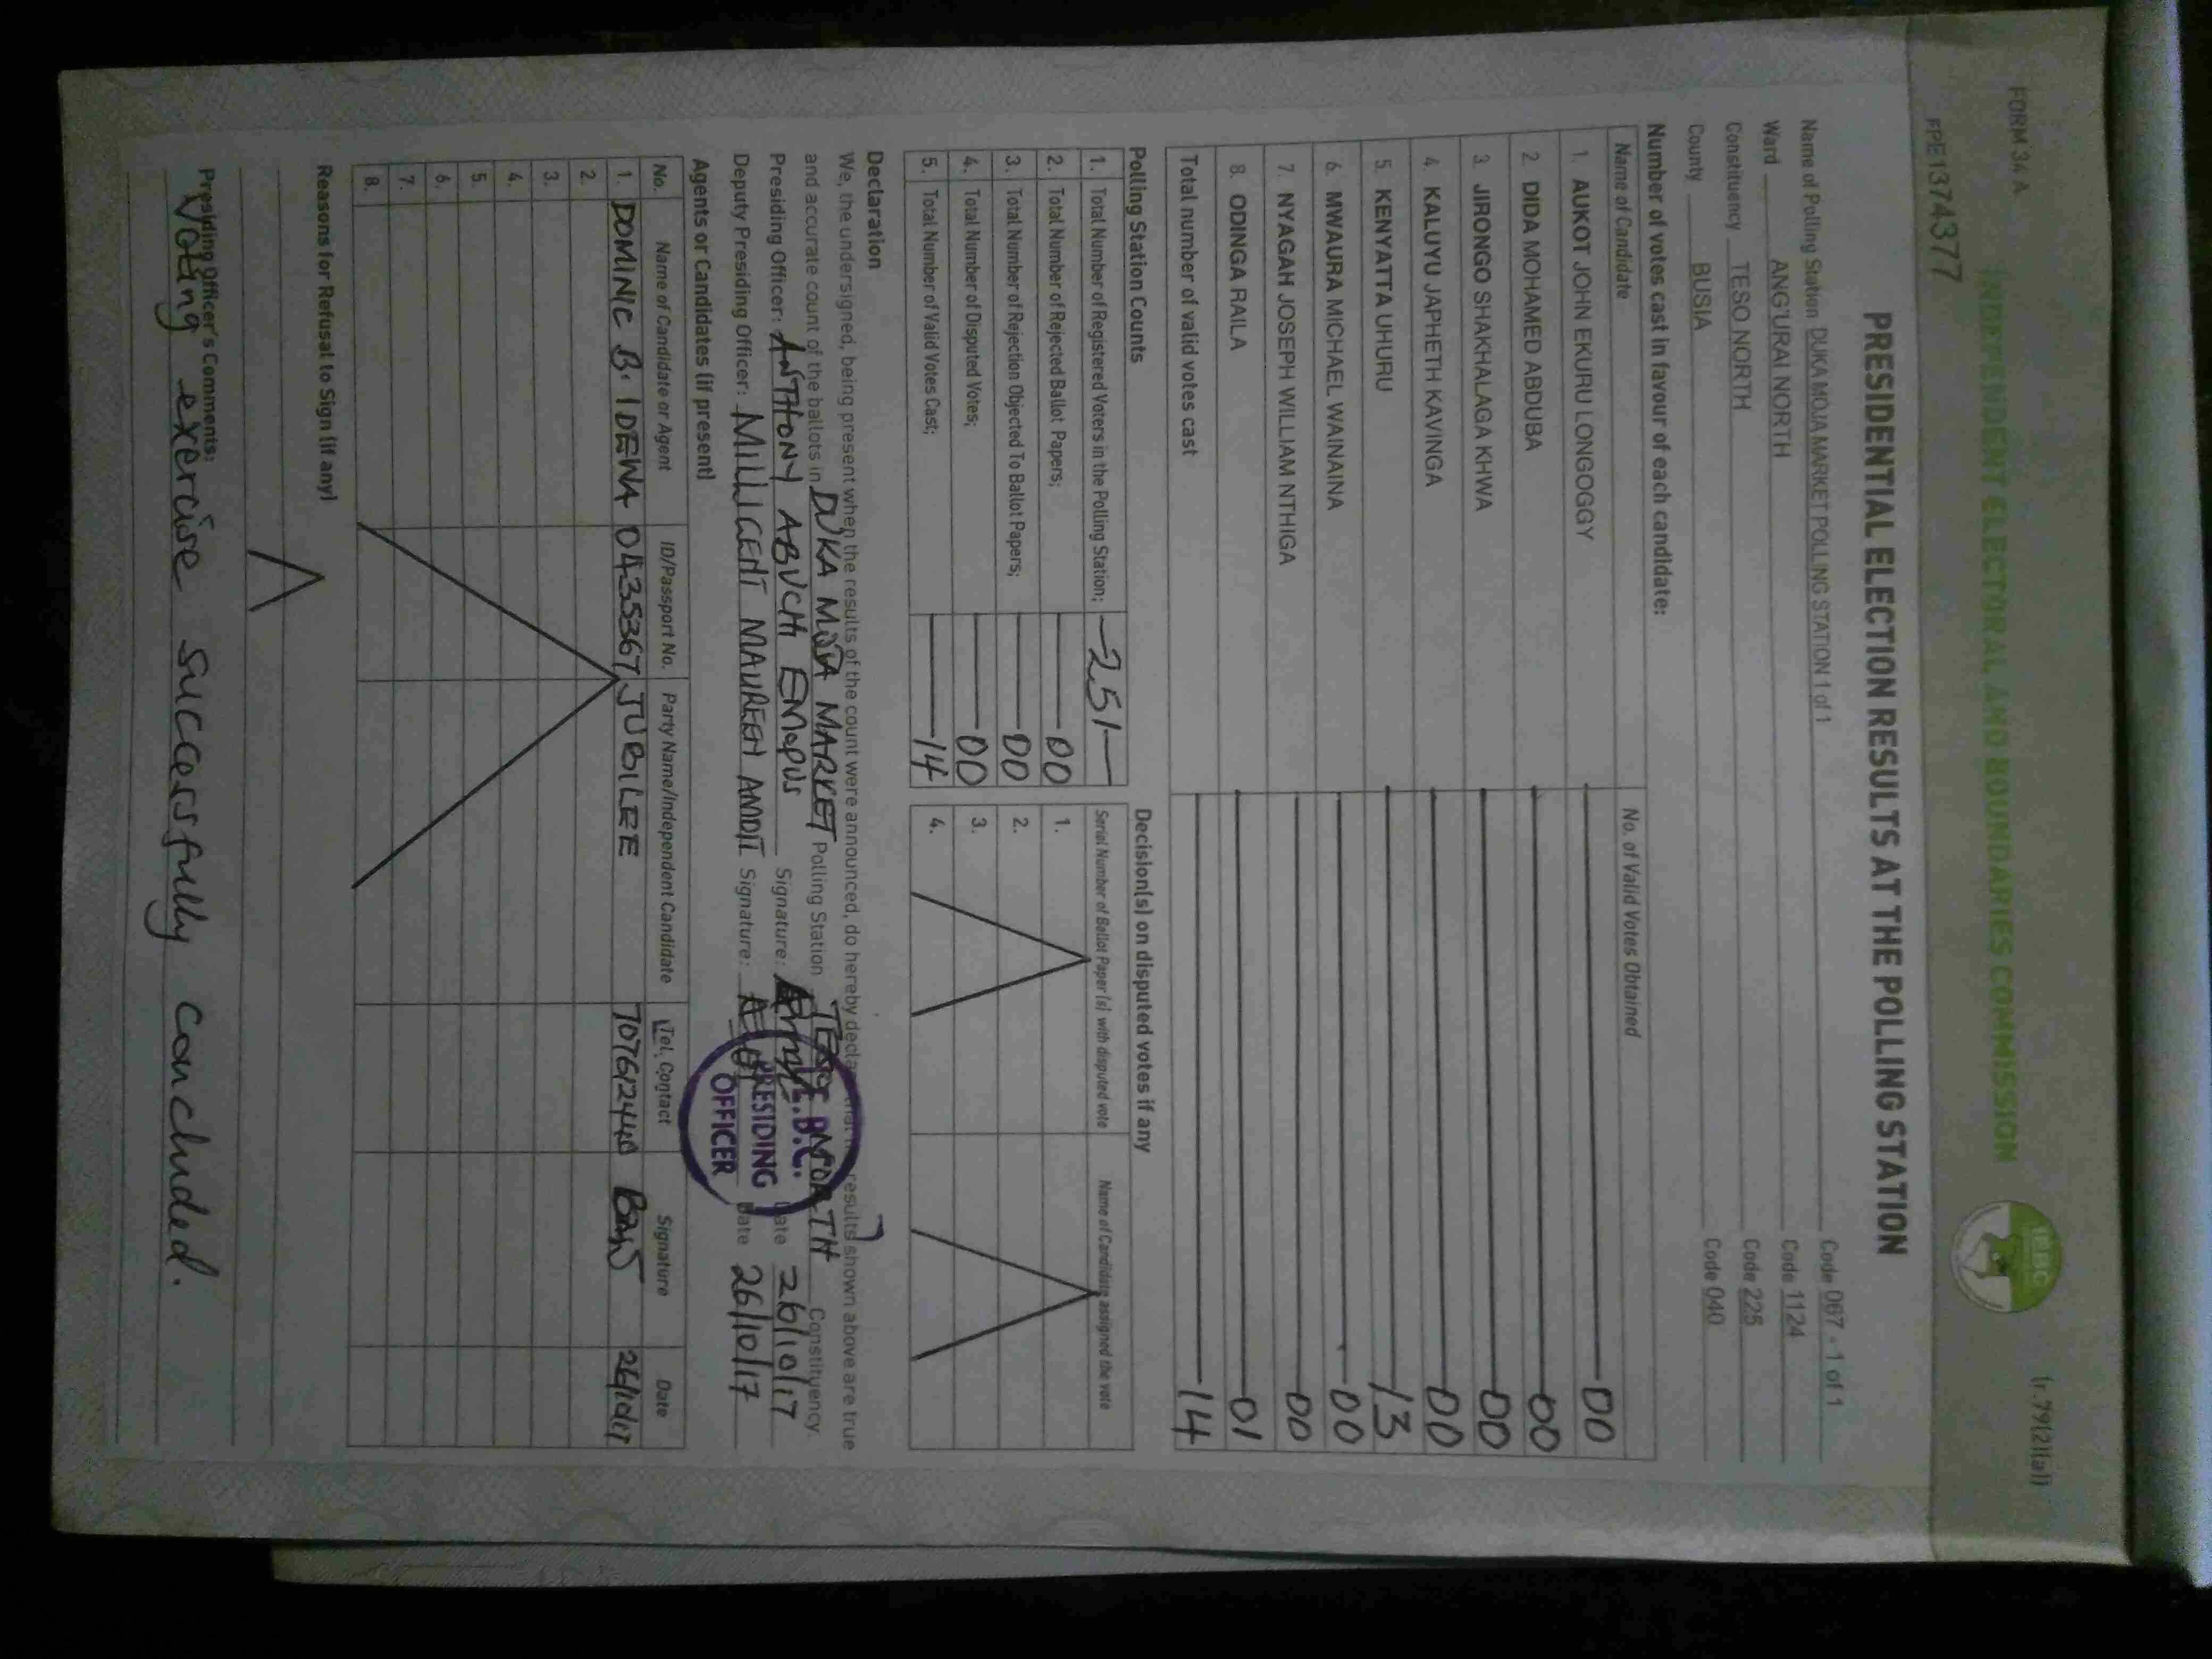 FORM 34 A
(r.79(2)(a))
INDEPENDENT ELECTORAL AND BOUNDARIES COMMISSION
IEBC
FPE1374377
PRESIDENTIAL ELECTION RESULTS AT THE POLLING STATION
Name of Polling Station DUKA MOJA MARKET POLLING STATION 1 of 1 Code 067 - 1 of 1
Ward ANG'URAI NORTH Code 1124
Constituency TESO NORTH Code 225
County BUSIA Code 040
Number of votes cast in favour of each candidate:
Name of Candidate No. of Valid Votes Obtained
1. AUKOT JOHN EKURU LONGOGGY 00
2. DIDA MOHAMED ABDUBA 00
3. JIRONGO SHAKHALAGA KHWA 00
4. KALUYU JAPHETH KAVINGA 00
5. KENYATTA UHURU 13
6. MWAURA MICHAEL WAINAINA 00
7. NYAGAH JOSEPH WILLIAM NTHIGA 00
8. ODINGA RAILA 01
Total number of valid votes cast 14
Polling Station Counts
1. Total Number of Registered Voters in the Polling Station; 251
2. Total Number of Rejected Ballot Papers; 00
3. Total Number of Rejection Objected To Ballot Papers; 00
4. Total Number of Disputed Votes; 00
5. Total Number of Valid Votes Cast; 14
Decision(s) on disputed votes if any
Serial Number of Ballot Paper(s) with disputed vote Name of Candidate assigned the vote
1.
2.
3.
4.
Declaration
We, the undersigned, being present when the results of the count were announced, do hereby declare that the results shown above are true
and accurate count of the ballots in DUKA MOJA MARKET Polling Station TESO NORTH Constituency
Presiding Officer: ANTHONY ABUCH EMOPUS Signature: Date 26/10/17
Deputy Presiding Officer: MILLICENT MAUREEN AMOIT Signature: Date 26/10/17
PRESIDING
OFFICER
Agents or Candidates (if present)
No. Name of Candidate or Agent ID/Passport No. Party Name/Independent Candidate Tel. Contact Signature Date
1. DOMINIC B. IDEWA 04353671 JUBILEE 707612440 26/10/17
2.
3.
4.
5.
6.
7.
8.
Reasons for Refusal to Sign (if any)
Presiding Officer's Comments:
Voting exercise successfully concluded.